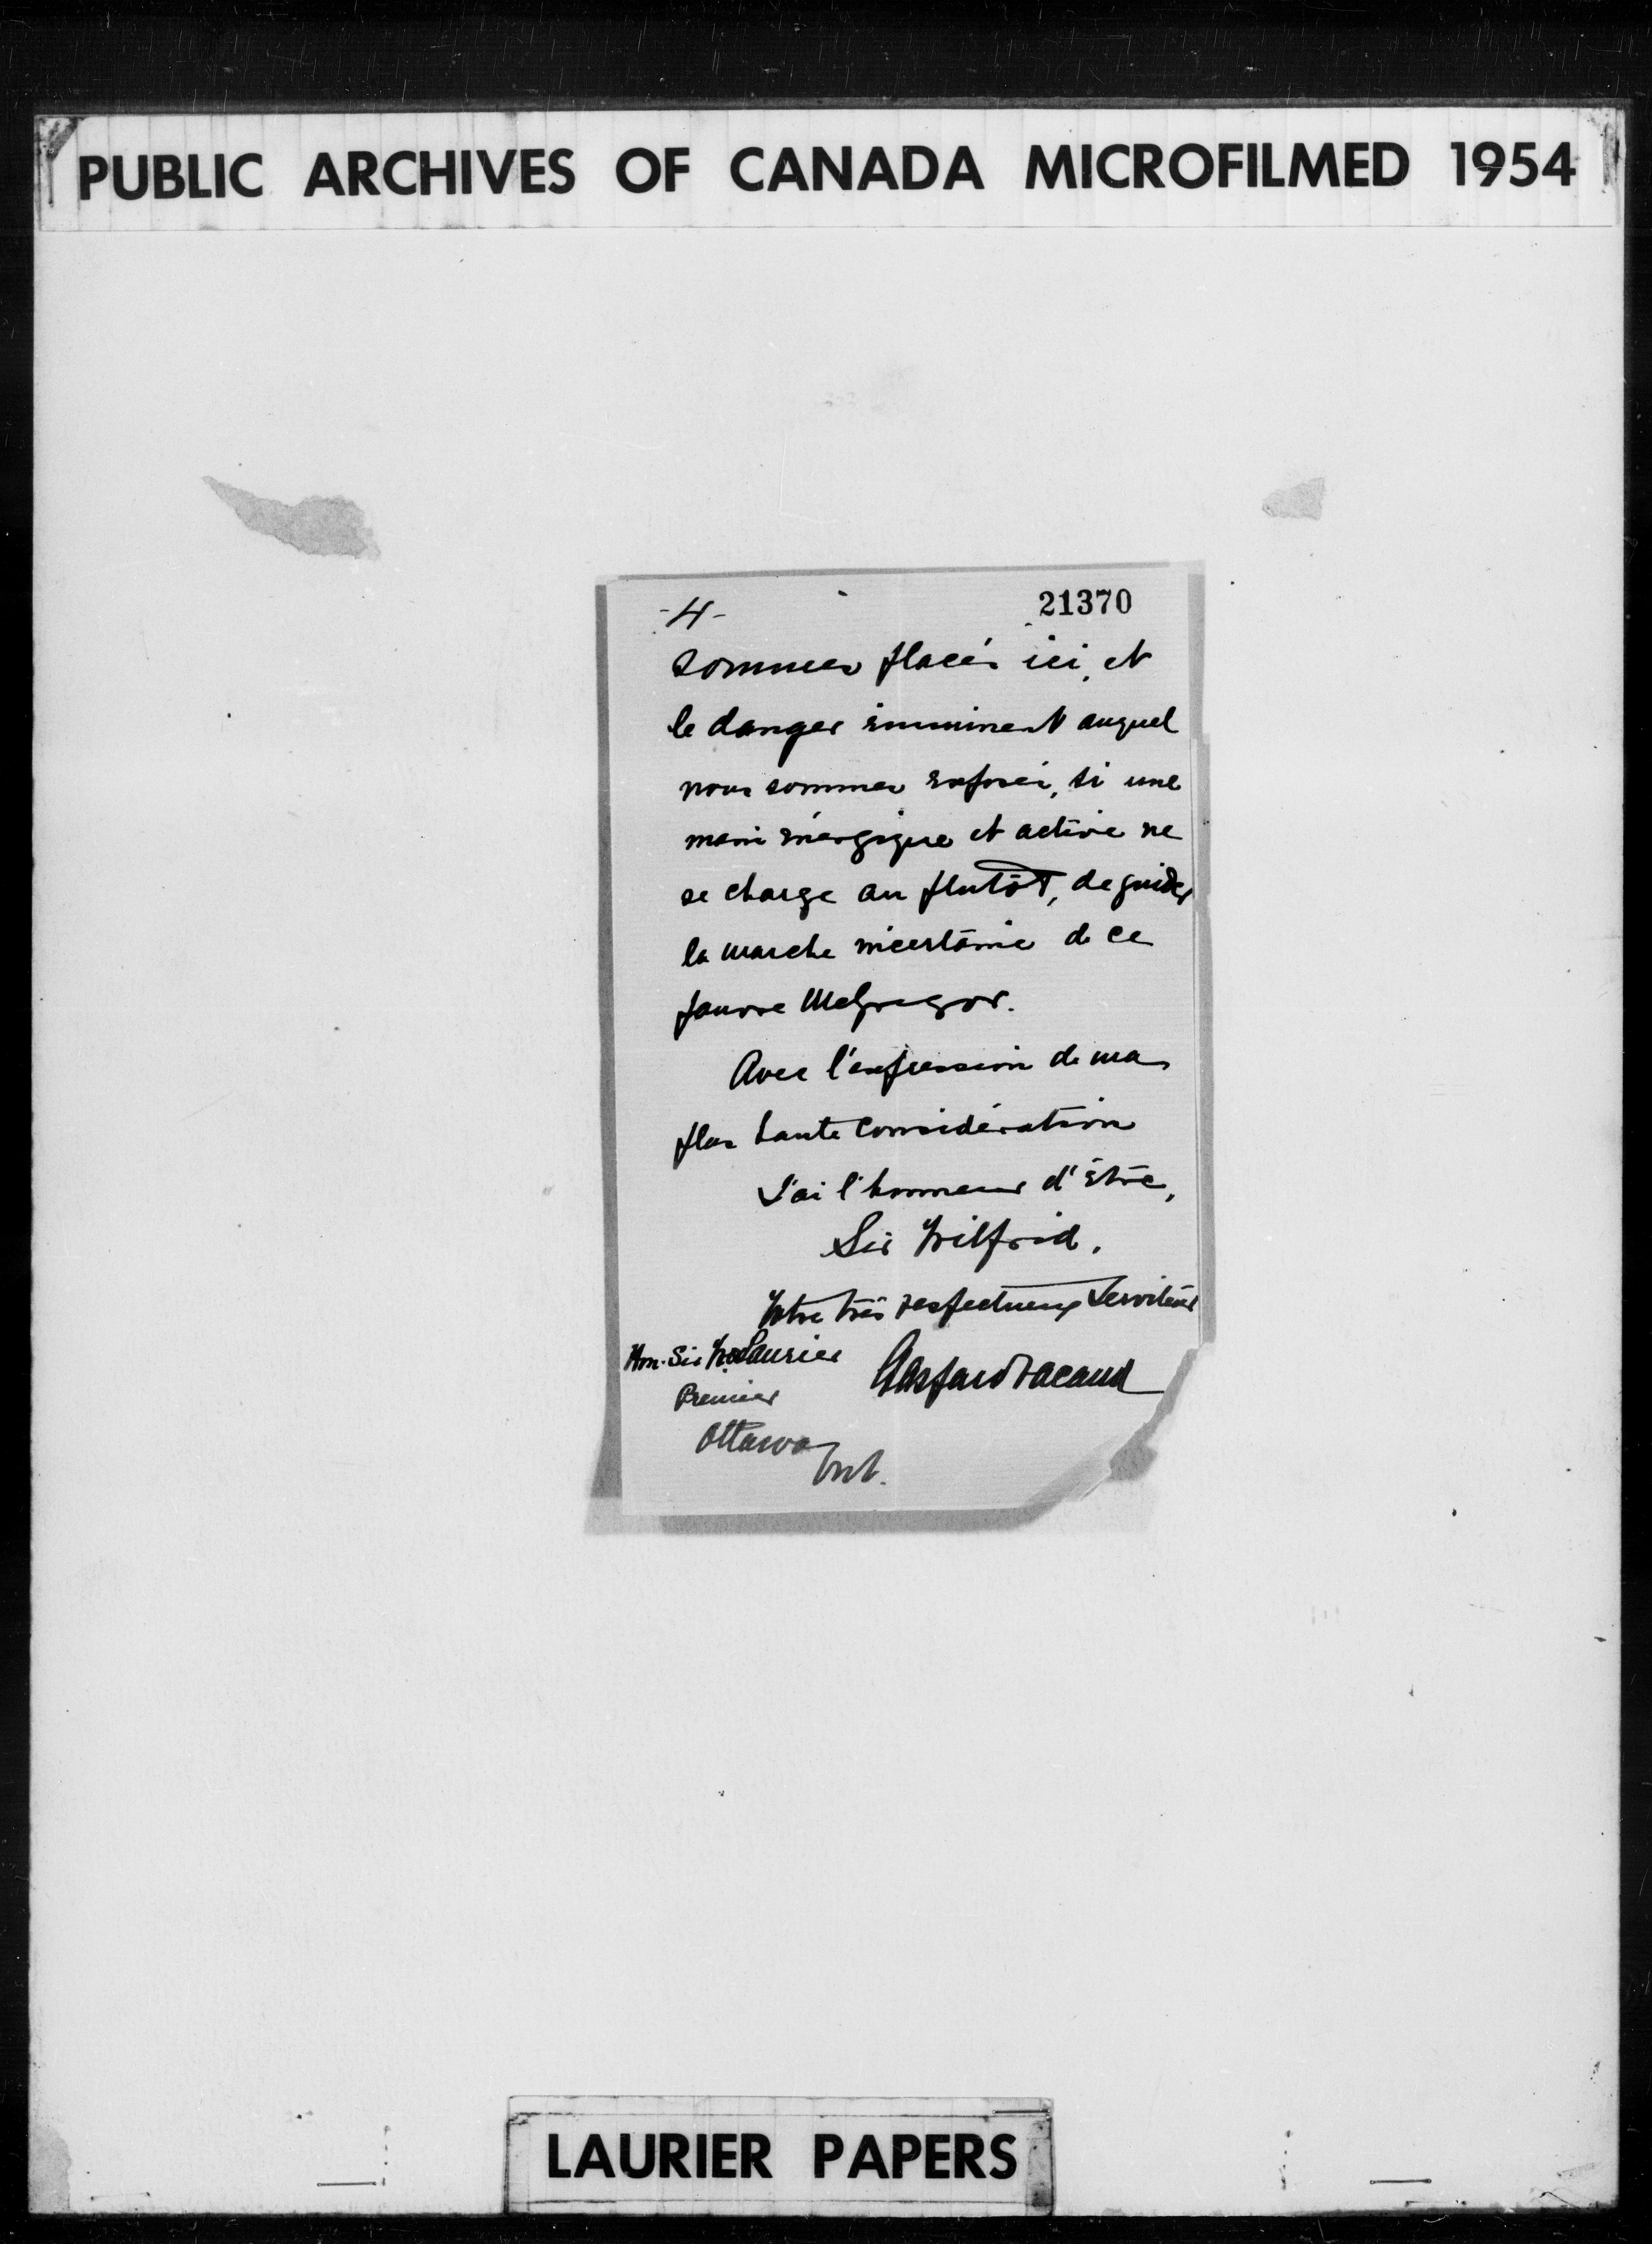 PUBLIC ARCHIVES OF CANADA MICROFILMED 1954
-4-
21370
sommes placés ici, et
le danger imminent auquel
nous sommes exposés, si une
main énergique et active ne
se charge au plutôt, de guider
la marche incertaine de ce
pauvre McGregor.
Avec l'expression de ma
plus haute considération
J'ai l'honneur d'être,
Sir Wilfrid,
Votre très respectueux Serviteur
Gaspard Pacaud
Hon. Sir W. Laurier
Premier
Ottawa
Ont.
LAURIER PAPERS